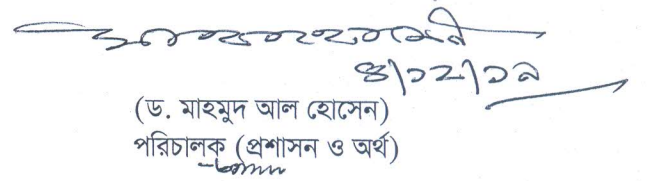 ৪/১২/১৯
(ড. মাহমুদ আল হোসেন)
পরিচালক (প্রশাসন ও অর্থ)